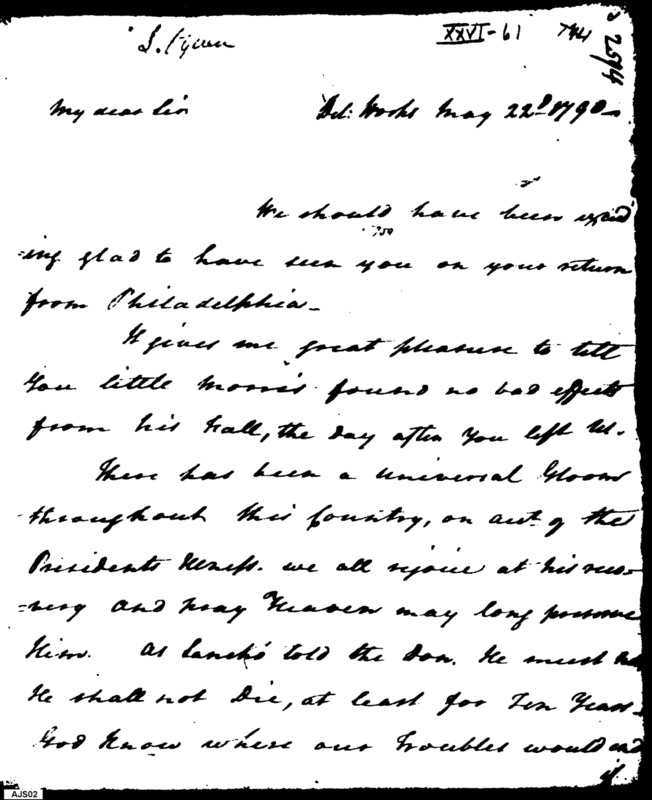 XXVI-61
2574
My dear Sir Del: Works May 22d 1790
We should have been exceed
=ing glad to have seen you on your return
from Philadelphia_
It gives me great pleasure to tell
You little Morris found no bad effects
from his Fall, the day after You left Us.
There has been a Universal Gloom
throughout this Country, on acct of the
Presidents Illness. we all rejoice at his reco=
=very and pray Heaven may long preserve
Him. As Sancho told the Don. He must
He shall not Die, at least for Ten Years_
God Know where our Troubles would end
if
AJS02